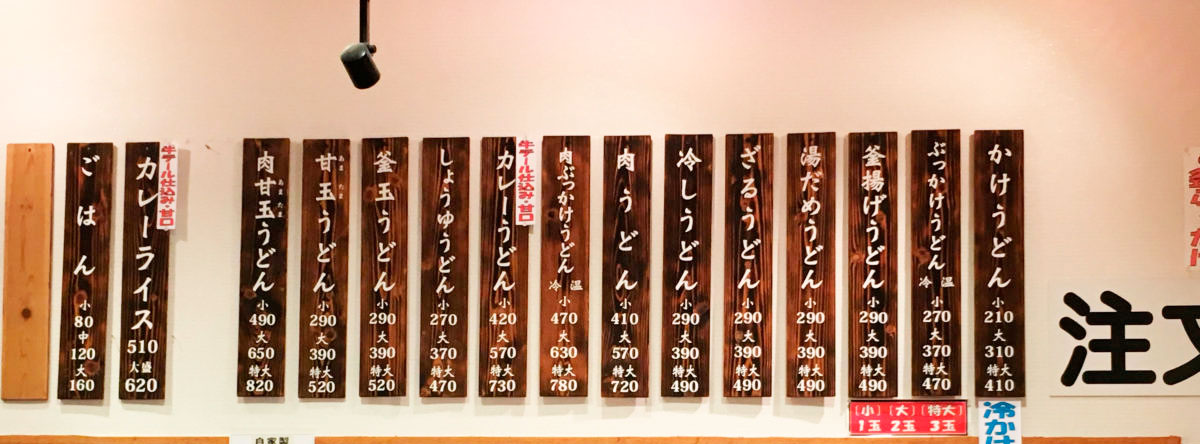 かけうどん
小
210
大
310
特大
410
ぶっかけうどん
冷 温
小
270
大
370
特大
470
釜揚げうどん
小
290
大
390
特大
490
湯だめうどん
小
290
大
390
特大
490
ざるうどん
小
290
大
390
特大
490
冷しうどん
小
290
大
390
特大
490
肉うどん
小
410
大
570
特大
720
肉ぶっかけうどん
冷 温
小
470
大
630
特大
780
カレーうどん
小
420
大
570
特大
730
牛テール仕込み・甘口
しょうゆうどん
小
270
大
370
特大
470
釜玉うどん
小
290
大
390
特大
520
甘玉うどん
あま たま
小
290
大
390
特大
520
肉甘玉うどん
あま たま
小
490
大
650
特大
820
カレーライス
510
大盛
620
牛テール仕込み・甘口
ごはん
小
80
中
120
大
160
[小] [大] [特大]
1玉 2玉 3玉
冷か
自家製
注文